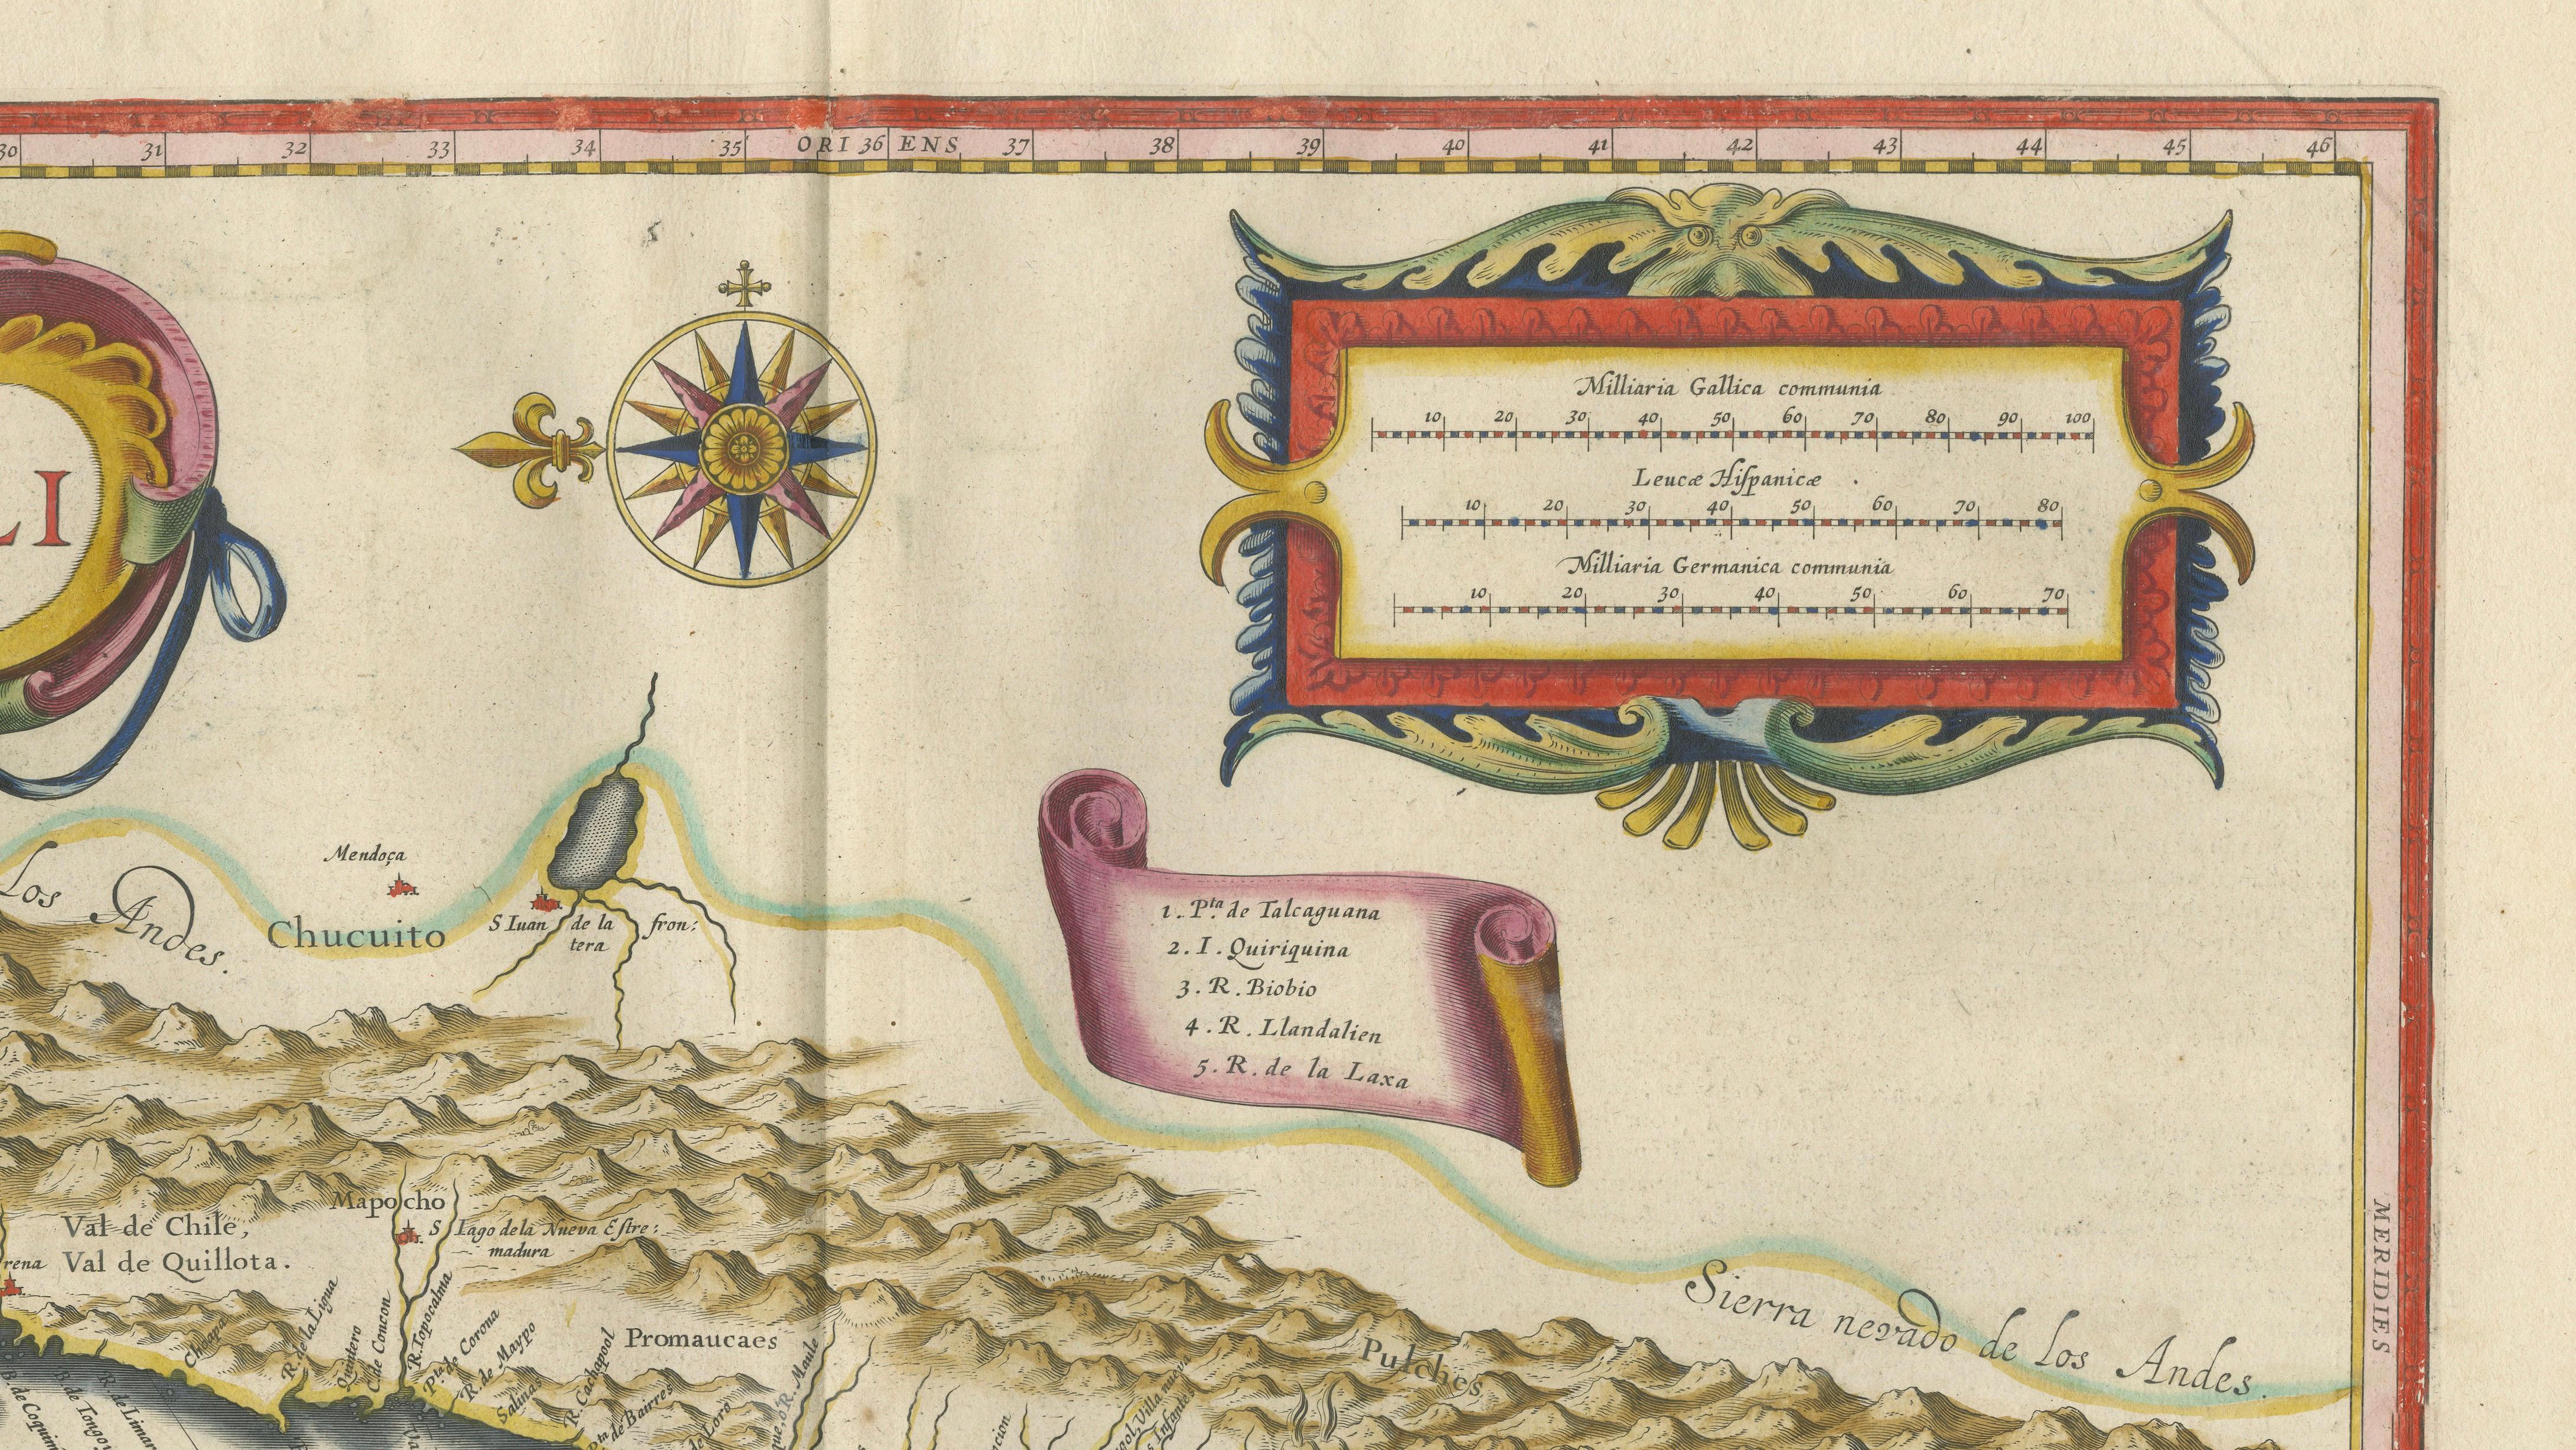 30 31 32 33 34 35 ORI 36 ENS 37 38 39 40 41 42 43 44 45 46
LI
Milliaria Gallica communia
10 20 30 40 50 60 70 80 90 100
Leucæ Hiſpanicæ
10 20 30 40 50 60 70 80
Milliaria Germanica communia
10 20 30 40 50 60 70
Los Andes.
Mendoça
Chucuito
S Iuan de la fron:
tera
1. Pta. de Talcaguana
2. I. Quiriquina
3. R. Biobio
4. R. Llandalien
5. R. de la Laxa
MERIDIES
Mapocho
Val de Chile,
S Iago de la Nueva Eſtre:
madura
rena
Val de Quillota.
Sierra nevado de los Andes.
Promaucaes
Pulches
Chuapa
R. de la Ligua
Quintero
C. de Concon
R. Topocalma
Pta de Corona
R. de Maypo
Salinas
R. Cachapool
Pta de Bairres
de Loro
R. Maule
gol, Villa nueva
s Infantes
cion
B. de Coquim
B. de Tongoy
R. de Limar
Va